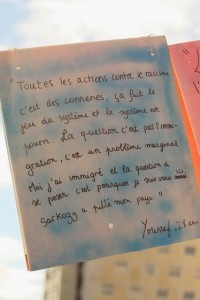 "Toutes les actions contre le racisme
c'est des conneries, ça fait le
jeu du système et le système est
pourri. La question c'est pas l'immi-
gration, c'est un problème marginal
Moi j'ai immigré et la question à
se poser c'est pourquoi je suis venu ici,
Sarkozy a pillé mon pays"
Youssef, 28 ans